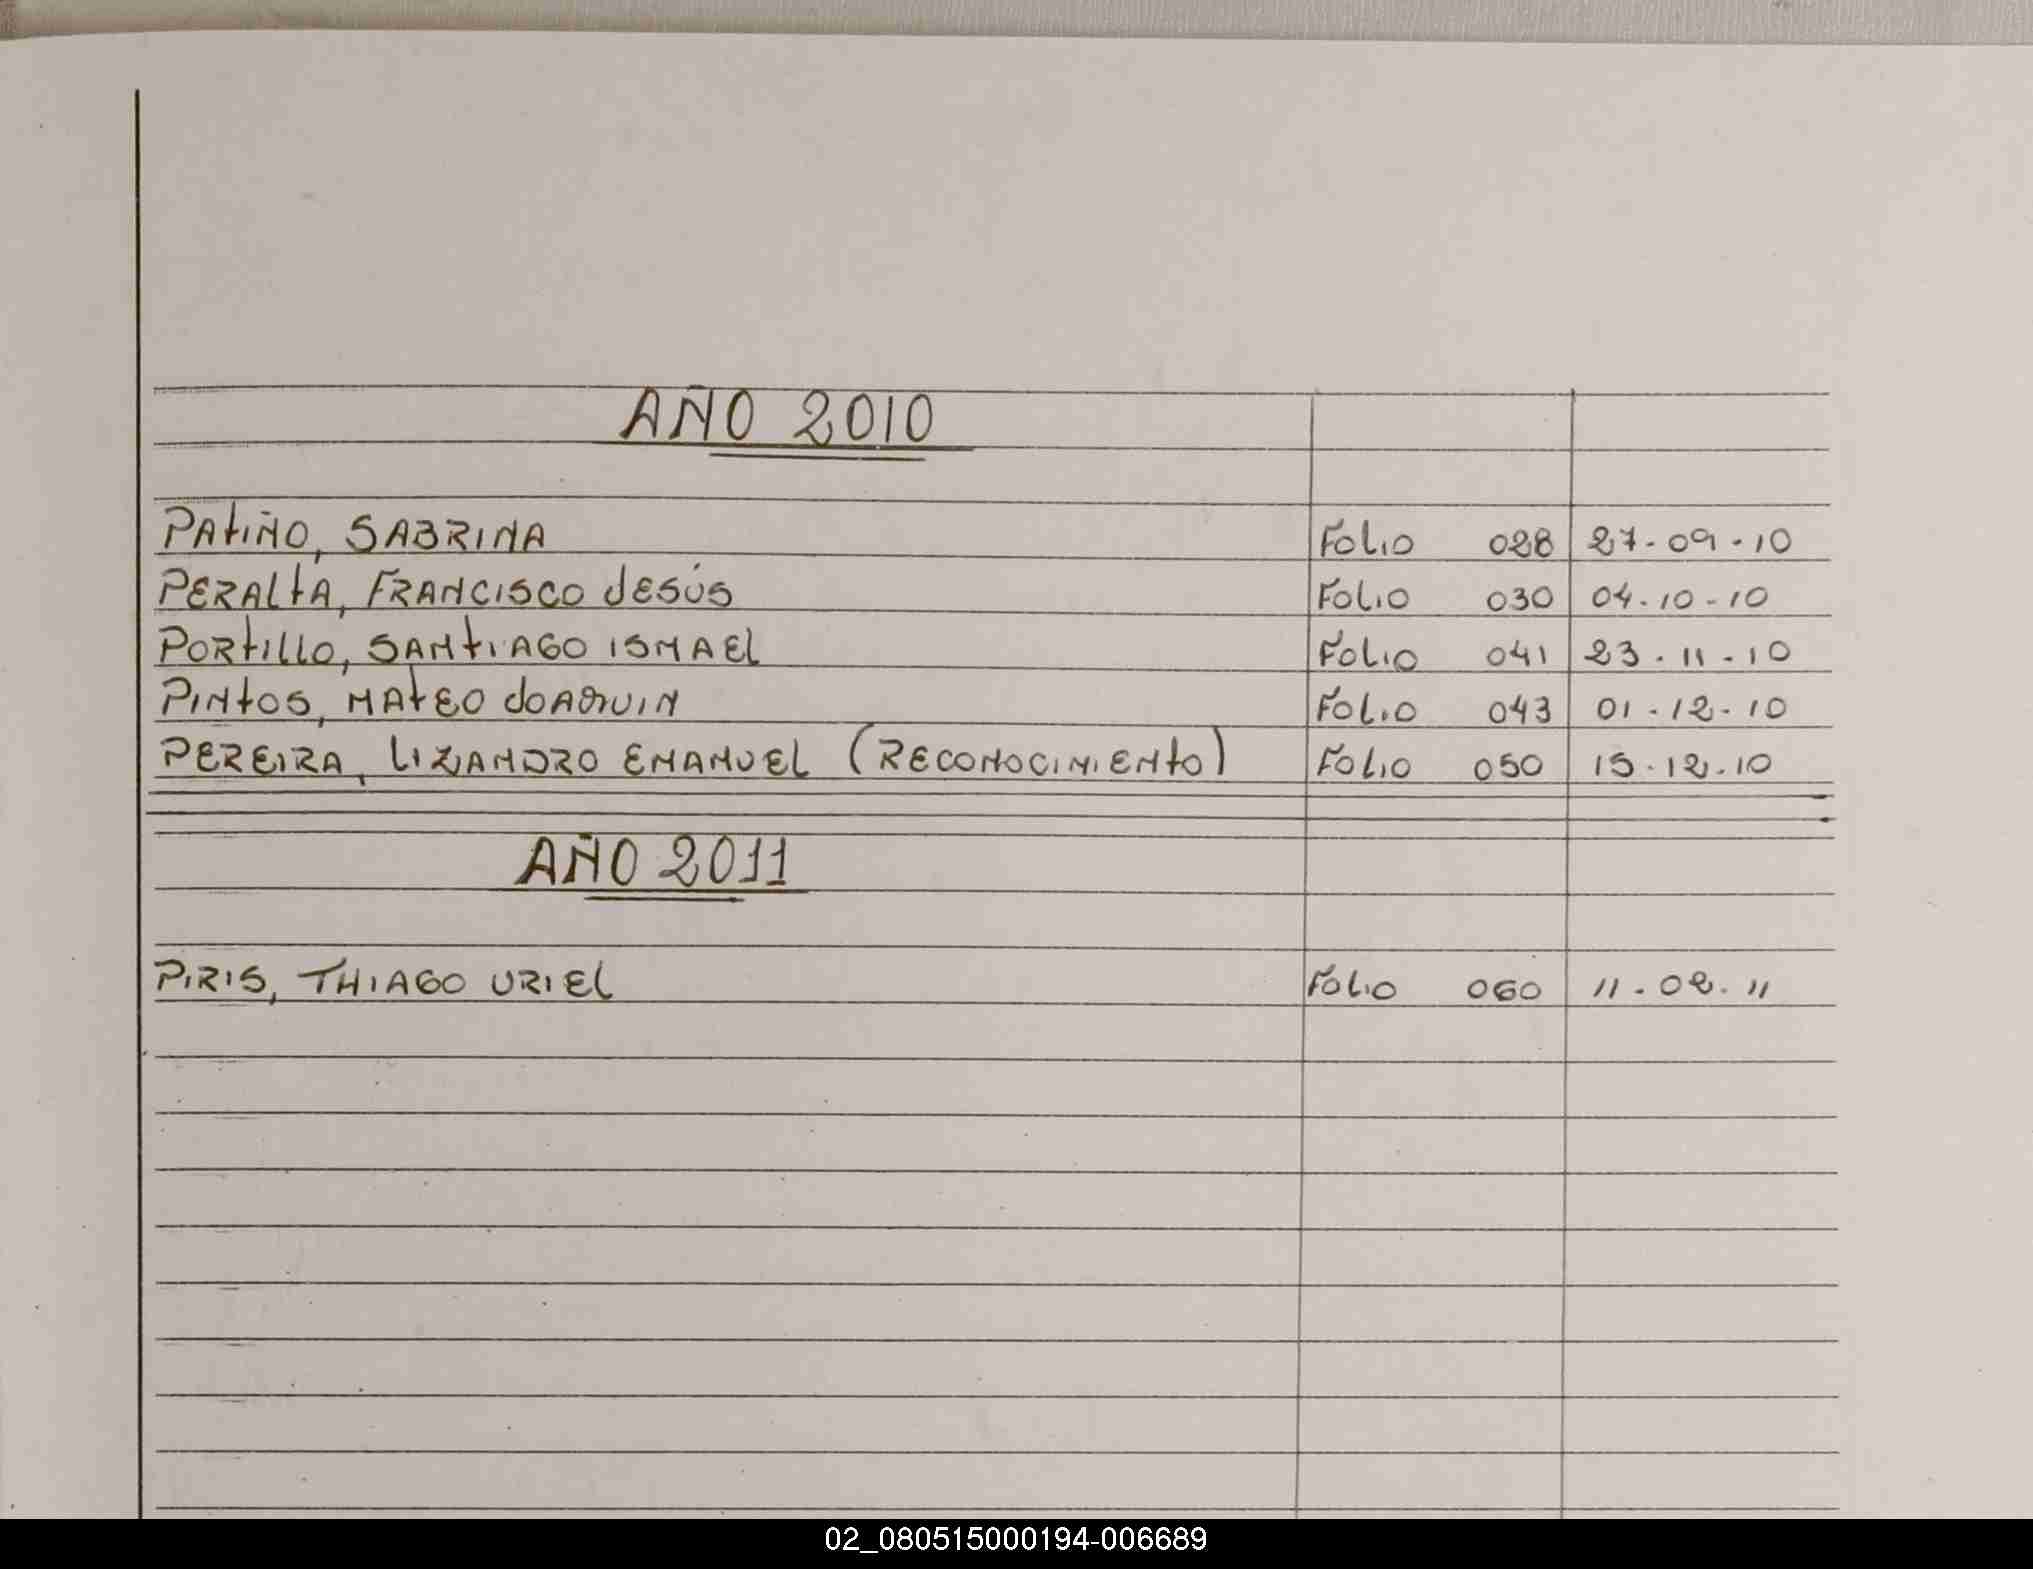 AÑO 2010
PATIÑO, SABRINA FOLIO 028 27-09-10
PERALTA, FRANCISCO JESÚS FOLIO 030 04-10-10
PORTILLO, SANTIAGO ISMAEL FOLIO 041 23-11-10
PINTOS, MATEO JOAQUIN FOLIO 043 01-12-10
PEREIRA, LIZANDRO EMANUEL (RECONOCIMIENTO) FOLIO 050 15-12-10
AÑO 2011
PIRIS, THIAGO URIEL FOLIO 060 11-02-11
02_080515000194-006689